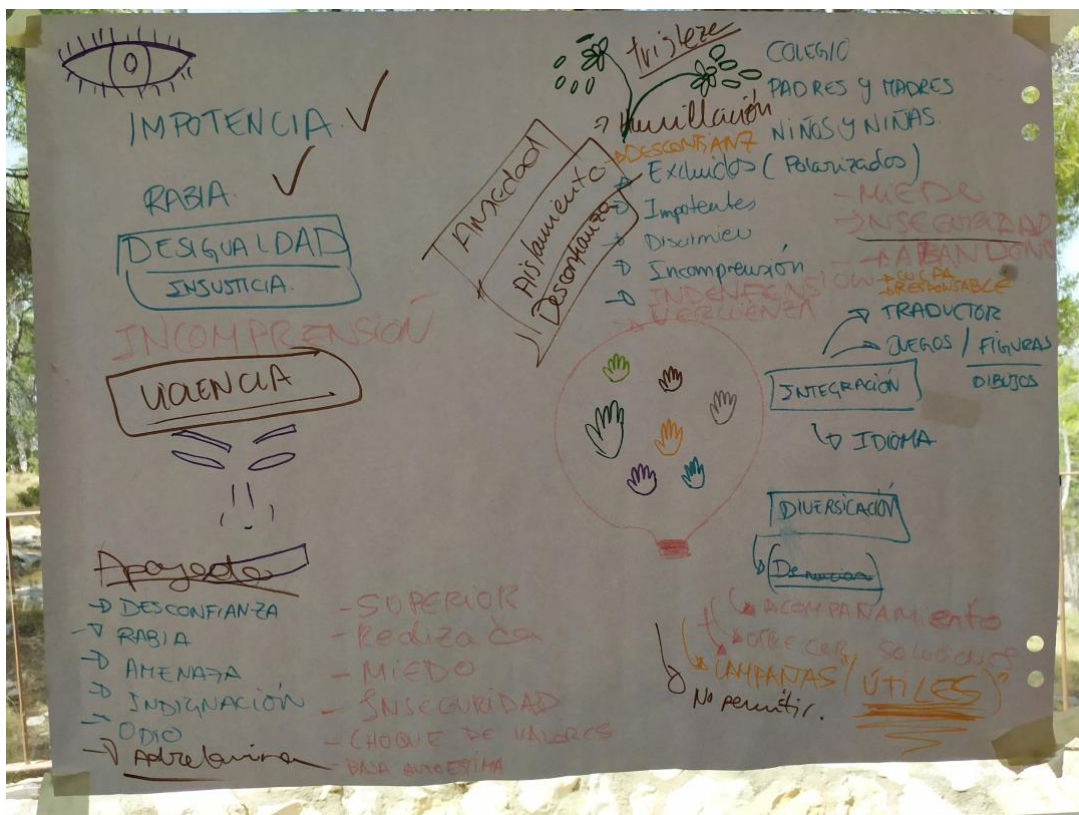 IMPOTENCIA.
RABIA.
DESIGUALDAD
INJUSTICIA.
INCOMPRENSIÓN
VIOLENCIA
Apoyado
→ DESCONFIANZA
→ RABIA
→ AMENAZA
→ INDIGNACIÓN
→ ODIO
- SUPERIOR
- Realizada
- MIEDO
- INSEGURIDAD
- CHOQUE DE VALORES
- BAJA AUTOESTIMA
Ansiedad
Aislamiento
Desconfianza
tristeza
→ Humillación
→ DESCONFIANZ
→ Excluidos (Polarizados)
→ Impotentes
→ Discrimien
→ Incomprensión
→ INDENFENSIÓN
→ VERGÜENZA
COLEGIO
PADRES Y MADRES
NIÑOS Y NIÑAS.
- MIEDO
→ INSEGURIDAD
→ ABANDONO
→ CULPA
→ RESPONSABLE
→ TRADUCTOR
→ JUEGOS / FIGURAS
DIBUJOS
INTEGRACIÓN
→ IDIOMA
DIVERSICACIÓN
(Denuncian)
ACOMPAÑAMIENTO
OFRECER SOLUCIONES
CAMPAÑAS (ÚTILES)
No permitir.